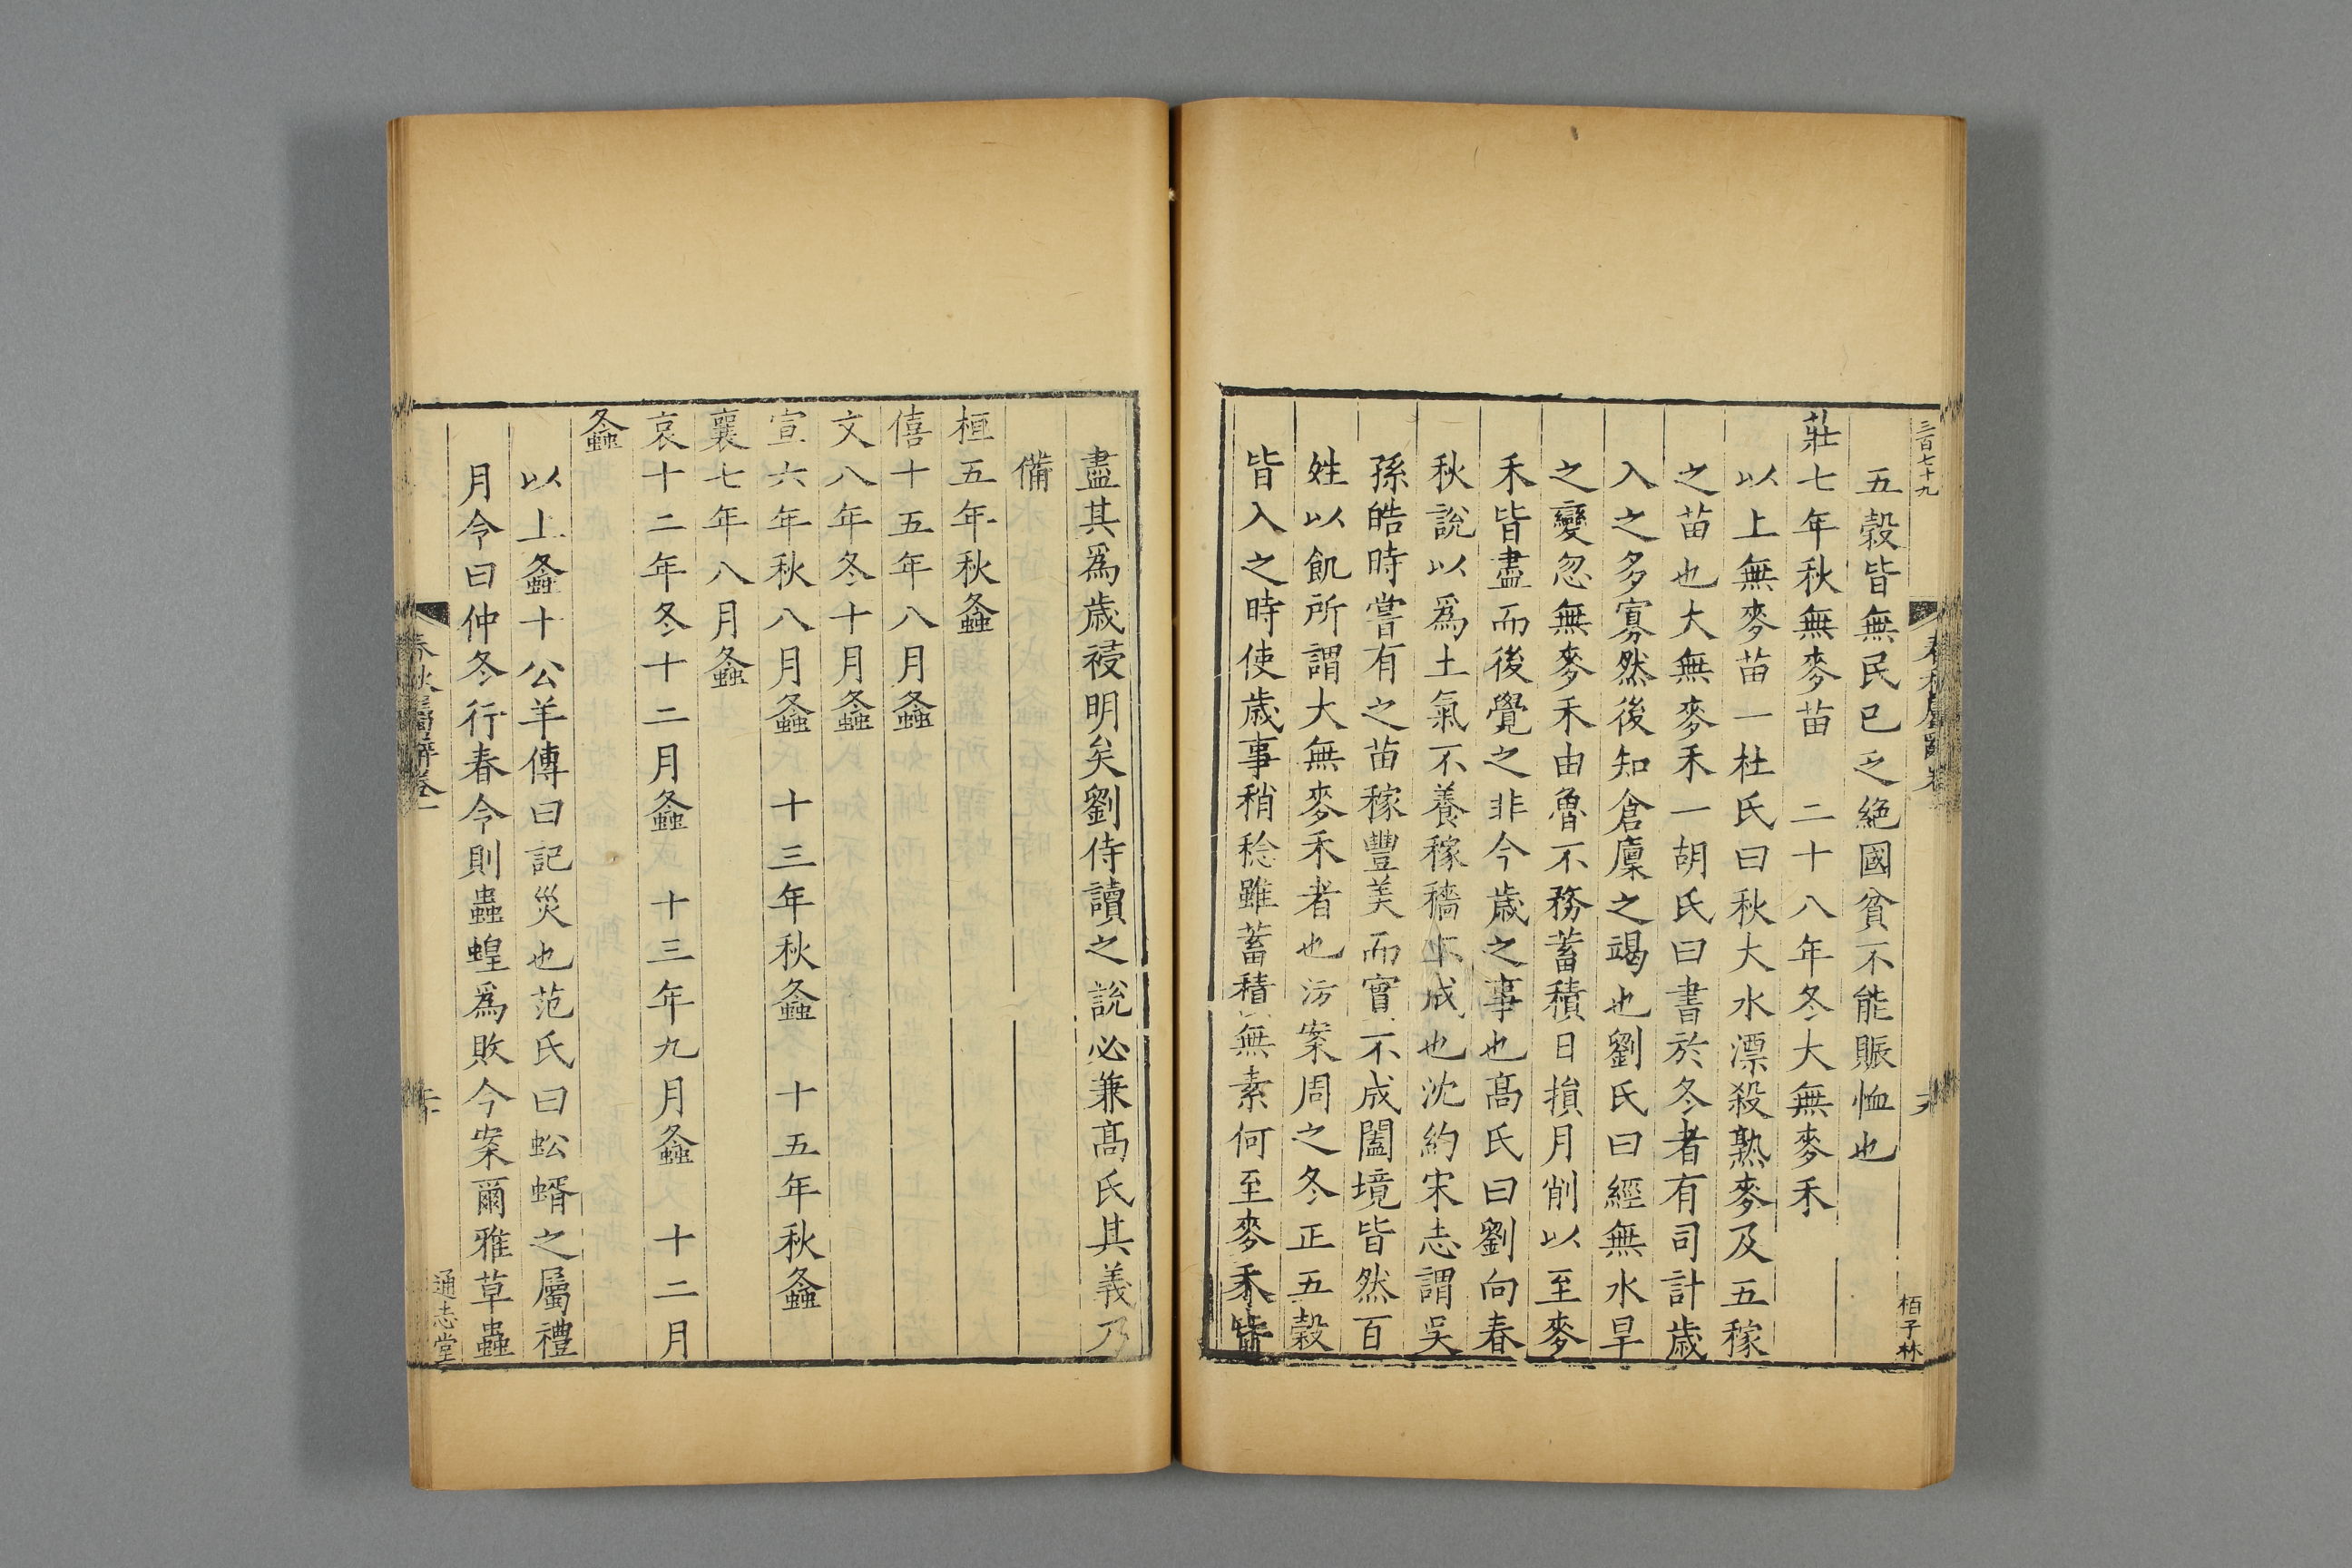 三百七十九
五穀皆無民已乏絶國貧不能賑恤也
莊七年秋無麥苗　二十八年冬大無麥禾
以上無麥苗一杜氏曰秋大水漂殺熟麥及五稼
之苗也大無麥禾一胡氏曰書於冬者有司計歲
入之多寡然後知倉廩之竭也劉氏曰經無水旱
之變忽無麥禾由魯不務蓄積日損月削以至麥
禾皆盡而後覺之非今歲之事也髙氏曰劉向春
秋說以爲土氣不養稼穡不成也沈約宋志謂吳
孫皓時嘗有之苗稼豐美而實不成闔境皆然百
姓以飢所謂大無麥禾者也汸案周之冬正五穀
皆入之時使歲事稍稔雖蓄積無素何至麥禾皆
栢子林
盡其爲歲祲明矣劉侍讀之說必兼髙氏其義乃
備
桓五年秋螽
僖十五年八月螽
文八年冬十月螽
宣六年秋八月螽　十三年秋螽　十五年秋螽
襄七年八月螽
哀十二年冬十二月螽　十三年九月螽　十二月
螽
以上螽十公羊傳曰記災也范氏曰蚣蝑之屬禮
月令曰仲冬行春令則蟲蝗爲敗今案爾雅草蟲
春秋屬辭卷一
通志堂